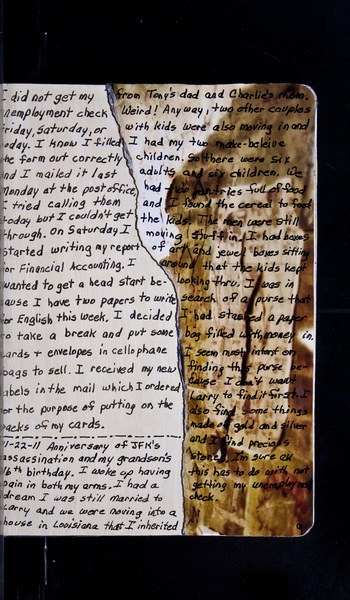 I did not get my
unemployment check
Friday, Saturday, or
today. I know I filled
the form out correctly
and I mailed it last
Monday at the post office.
I tried calling them
today but I couldn't get
through. On Saturday I
started writing my report
for Financial Accounting. I
wanted to get a head start be-
cause I have two papers to write
for English this week. I decided
to take a break and put some
cards + envelopes in cellophane
bags to sell. I received my new
labels in the mail which I ordered
for the purpose of putting on the
backs of my cards.
11-22-11 Anniversary of JFK's
assassination and my grandson's
16th birthday. I woke up having
pain in both my arms. I had a
dream I was still married to
Larry and we were moving into a
house in Louisiana that I inherited
from Tony's dad and Charlie's mom.
Weird! Anyway, two other couples
with kids were also moving in and
I had my two make-believe
children. So there were six
adults and six children. We
had two pantries full of food
and I found the cereal to feed
the kids. The men were still
moving stuff in. I had boxes
of art and jewel boxes sitting
around that the kids kept
looking thru. I was in
search of a purse that
I had stashed a paper
bag filled with money in.
I seem most intent on
finding this purse be-
cause I don't want
Larry to find it first. I
also find some things
made of gold and silver
and I find precious
stones. I'm sure all
this has to do with not
getting my unemployment
check.